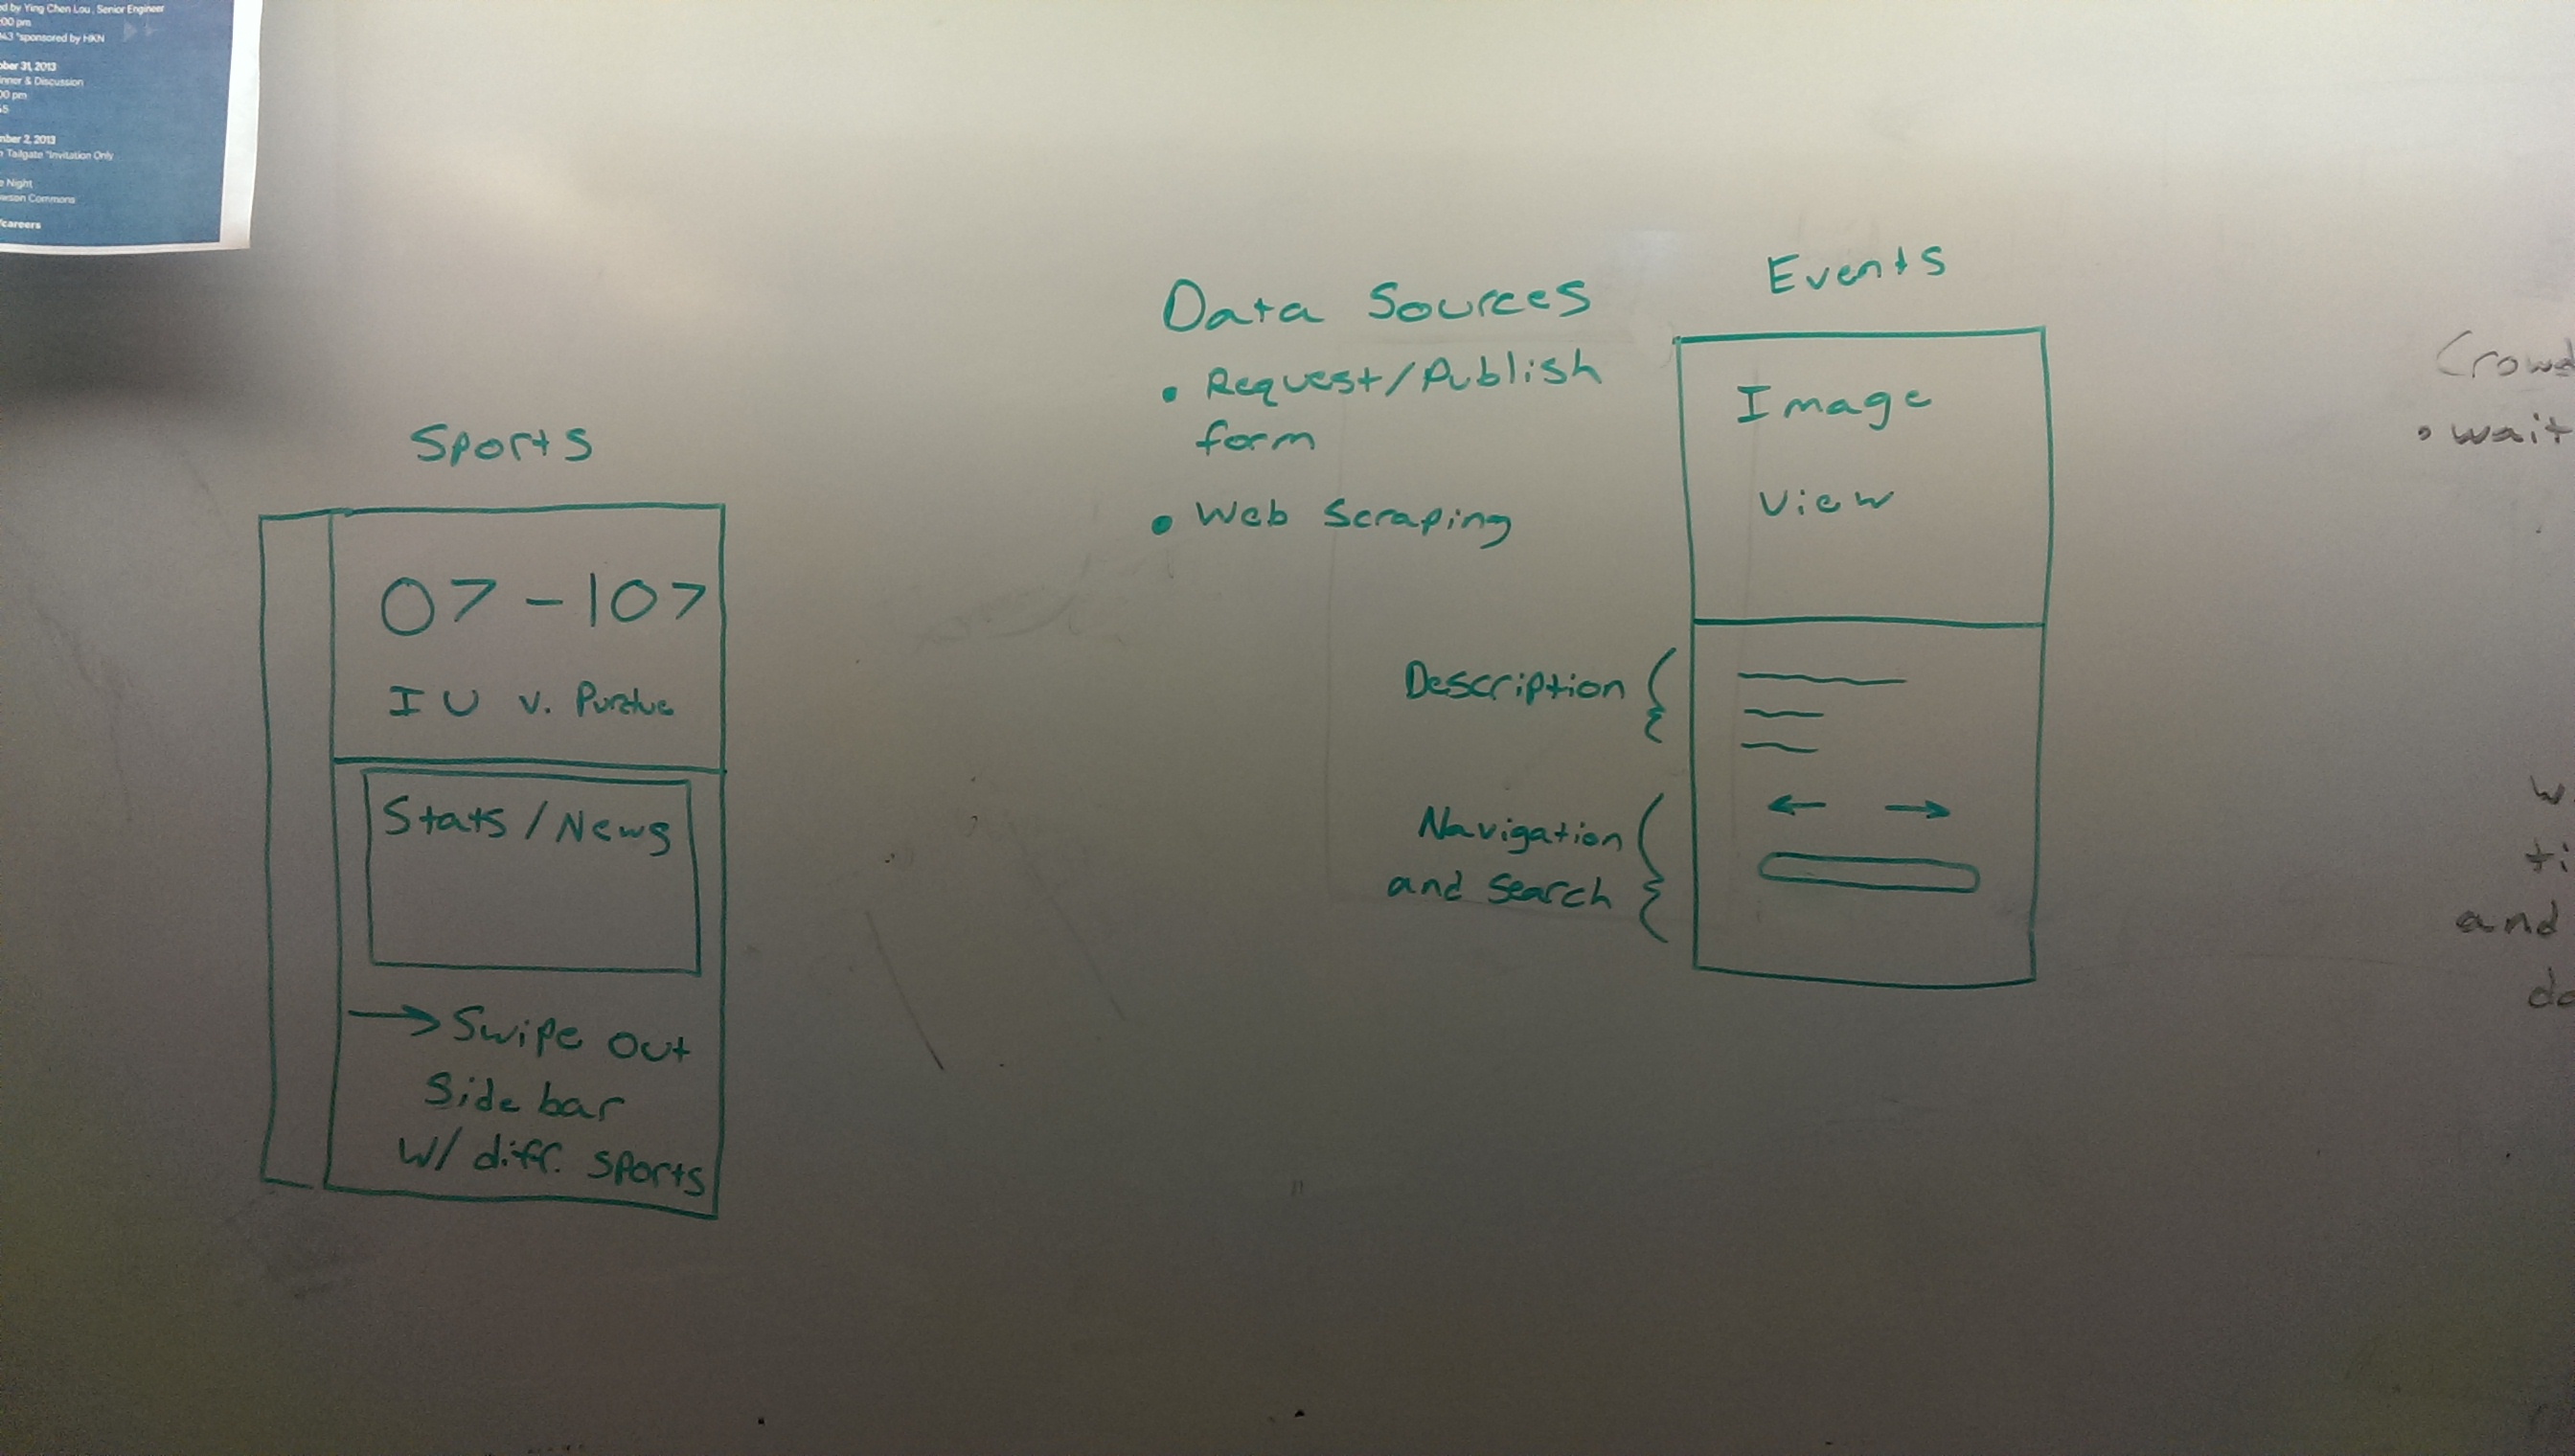 by Ying Chen Lou, Senior Engineer
:00 pm
"sponsored by HKN
31, 2013
& Discussion
00 pm
2, 2013
Tailgate "Invitation Only
Night
Commons
careers
Sports
07 - 107
IU v. Purdue
Stats / News
→ Swipe out
Side bar
w/ diff. sports
Data Sources
• Request/Publish
form
• Web Scraping
Events
Image
View
Description
Navigation
and Search
← →
• wait
and